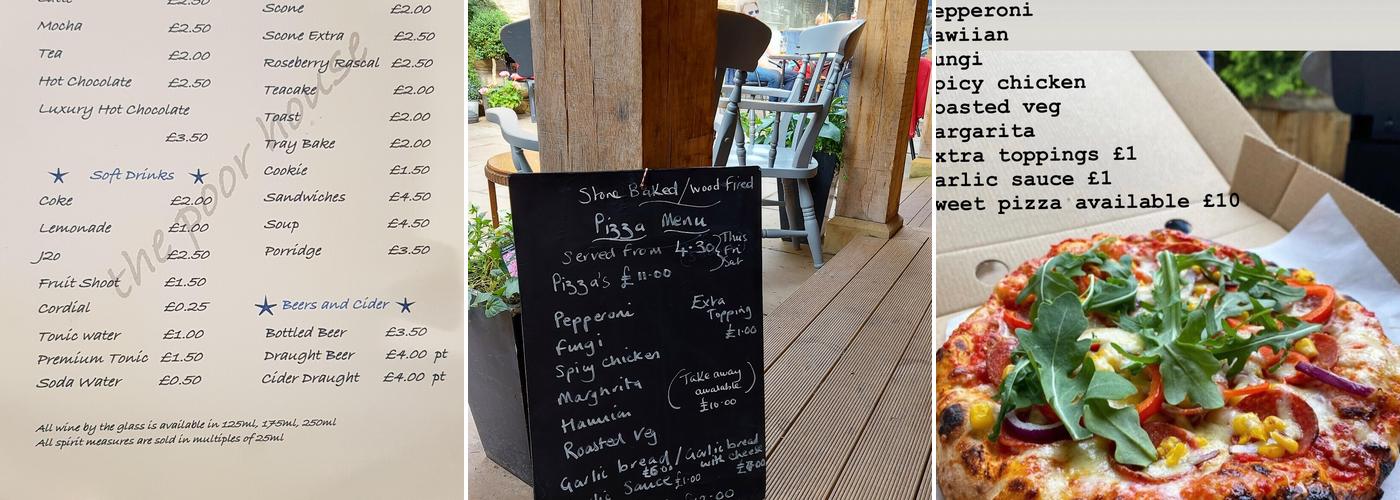 Mocha £2.50
Tea £2.00
Hot Chocolate £2.50
Luxury Hot Chocolate
£3.50
Soft Drinks
Coke £2.00
Lemonade £1.00
J2o £2.50
Fruit Shoot £1.50
Cordial £0.25
Tonic water £1.00
Premium Tonic £1.50
Soda Water £0.50
Scone £2.00
Scone Extra £2.50
Roseberry Rascal £2.50
Teacake £2.00
Toast £2.00
Tray Bake £2.00
Cookie £1.50
Sandwiches £4.50
Soup £4.50
Porridge £3.50
Beers and Cider
Bottled Beer £3.50
Draught Beer £4.00 pt
Cider Draught £4.00 pt
the poor house
All wine by the glass is available in 125ml, 175ml, 250ml
All spirit measures are sold in multiples of 25ml
Stone Baked/wood Fired
Pizza Menu
Served from 4.30
Thus
Fri
Sat
Pizza's £11.00
Pepperoni
Fungi
Spicy chicken
Marghrita
Roasted Veg
Extra
Topping
£1.00
(Take away
available)
£10.00
Garlic bread / Garlic bread
£6.00 with cheese
Sauce £1.00
epperoni
awiian
ungi
picy chicken
oasted veg
argarita
xtra toppings £1
arlic sauce £1
weet pizza available £10